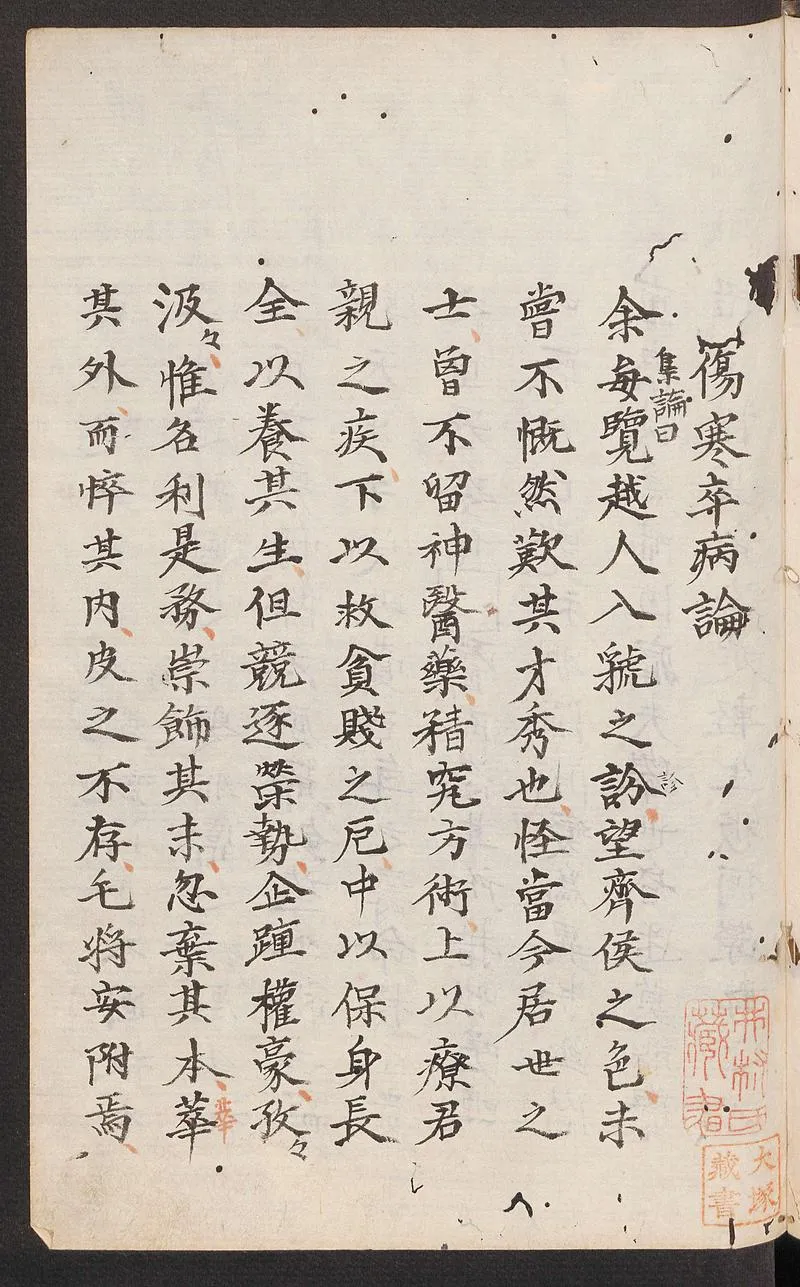 傷寒卒病論
集論曰
余每覽越人入虢之訜望齊侯之色未
診
嘗不慨然歎其才秀也怪當今居世之
士曽不留神醫藥精究方術上以療君
親之疾下以救貧賤之厄中以保身長
全以養其生但競逐榮勢企踵權豪孜々
汲々惟名利是務崇飾其末忽棄其本華
華
其外而悴其内皮之不存毛将安附焉
大塚
藏書